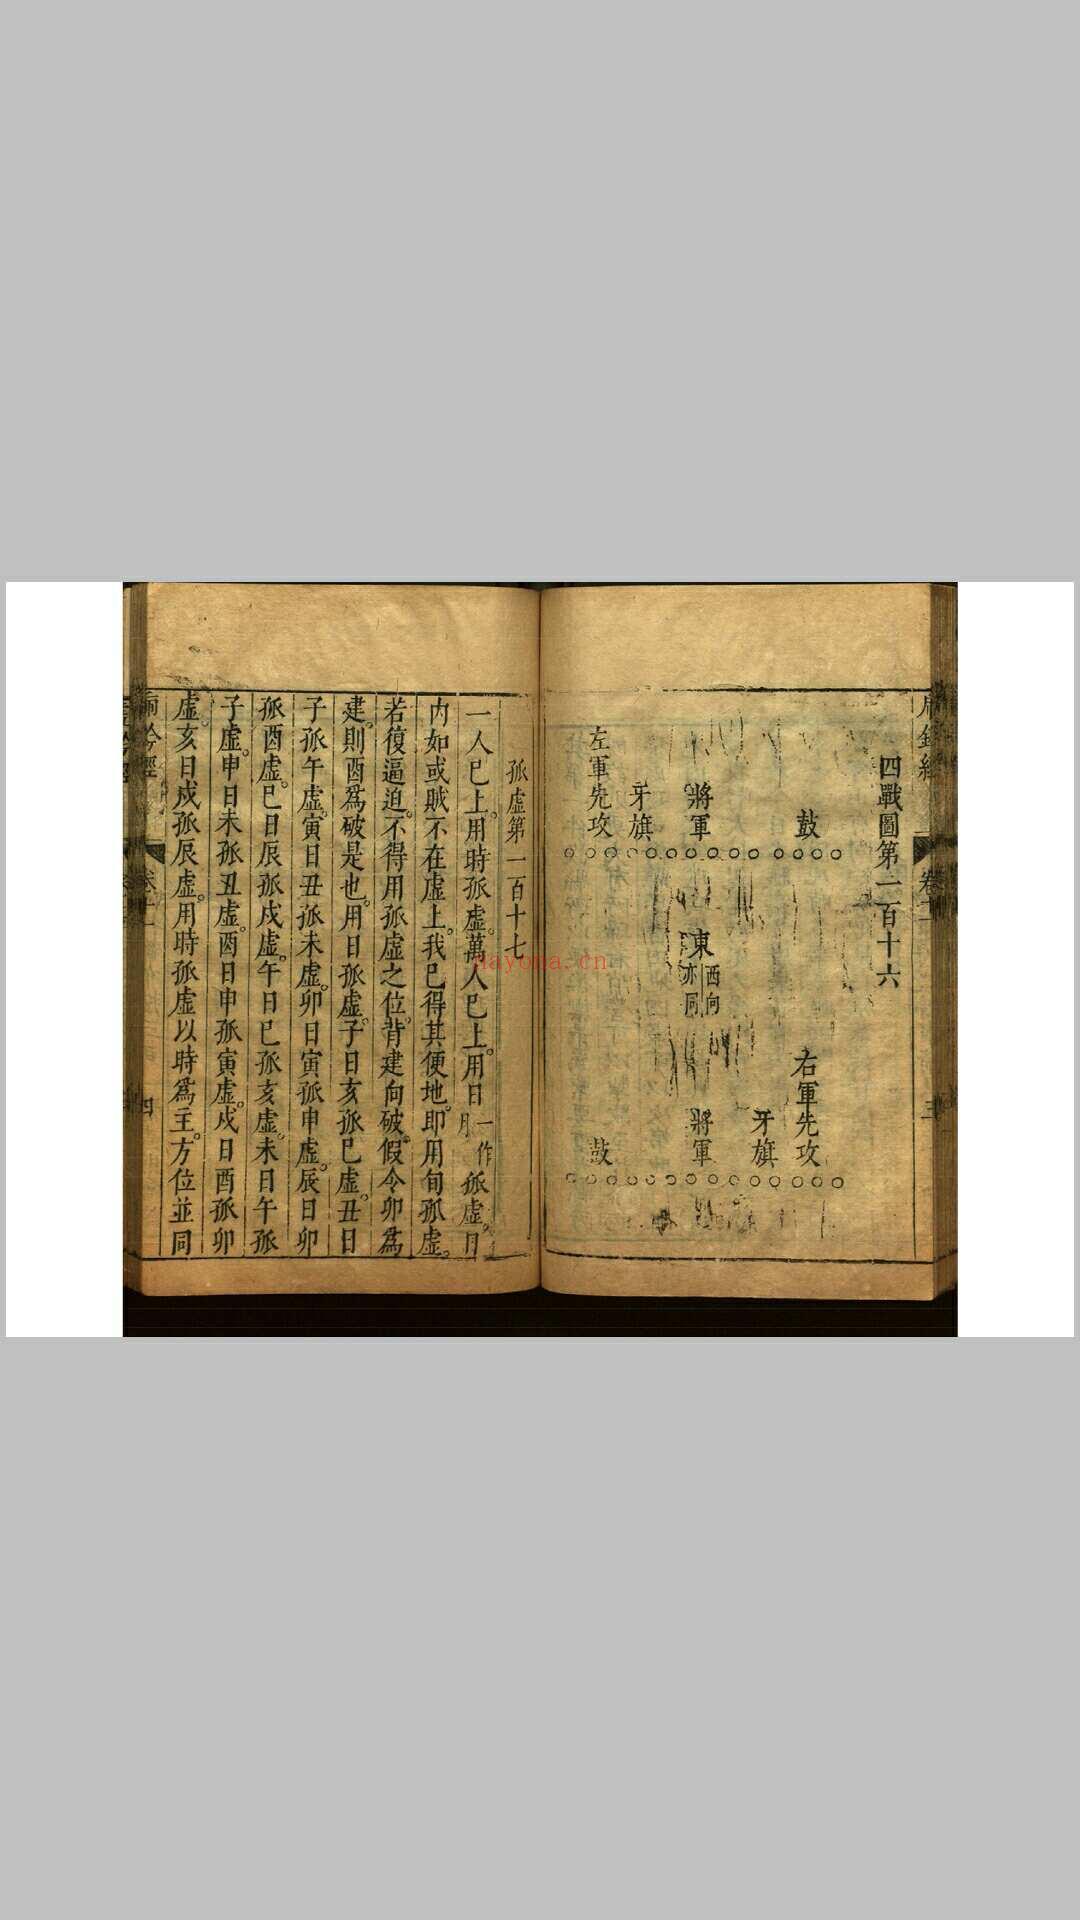 四戰圖第一百十六
鼓
將軍
牙旗
左軍先攻
東
西向
亦同
右軍先攻
牙旗
將軍
鼓
三
孤虛第一百十七
一人巳上。用時孤虛。萬人巳上。用日一作月孤虛。月
内如或賊不在虛上。我巳得其便地。即用旬孤虛。
若復逼迫。不得用孤虛之位。背建向破。假令卯爲
建。則酉爲破是也。用日孤虛。子日亥孤巳虛。丑日
子孤午虛。寅日丑孤未虛。卯日寅孤申虛。辰日卯
孤酉虛。巳日辰孤戌虛。午日巳孤亥虛。未日午孤
子虛。申日未孤丑虛。酉日申孤寅虛。戌日酉孤卯
虛。亥日戌孤辰虛。用時孤虛以時爲主。方位並同
四
nayona.cn